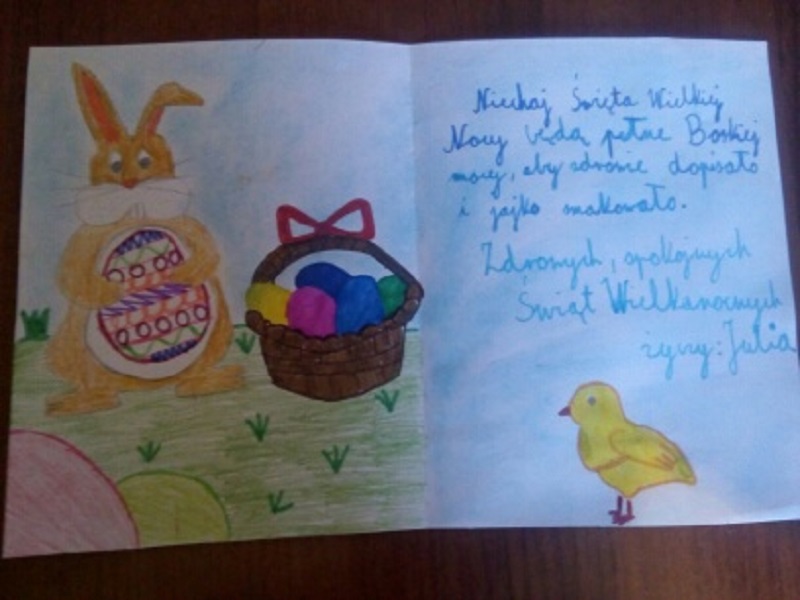 Niechaj Święta Wielkiej
Nocy będą pełne Boskiej
mocy, aby zdrowie dopisało
i jajko smakowało.
Zdrowych, spokojnych
Świąt Wielkanocnych
życzy: Julia